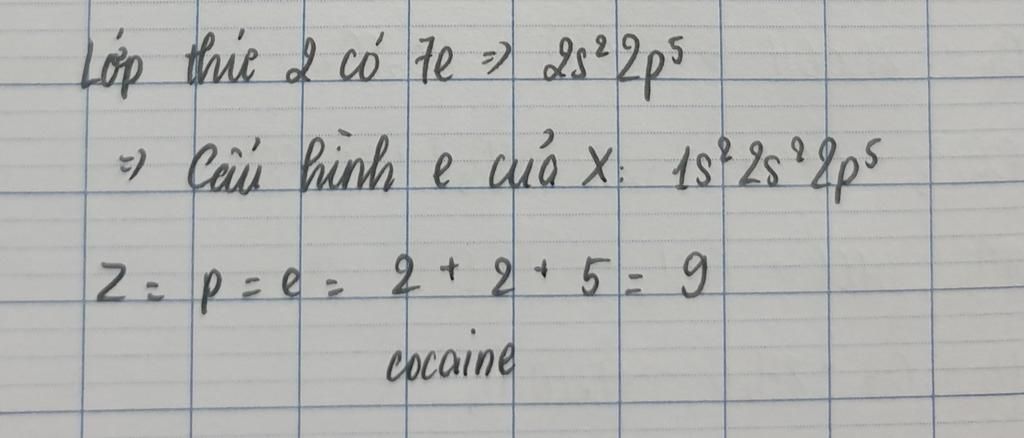 Lớp thứ 2 có 7e => 2s² 2p⁵
=> Cấu hình e của X: 1s² 2s² 2p⁵
Z = p = e = 2 + 2 + 5 = 9
cocaine